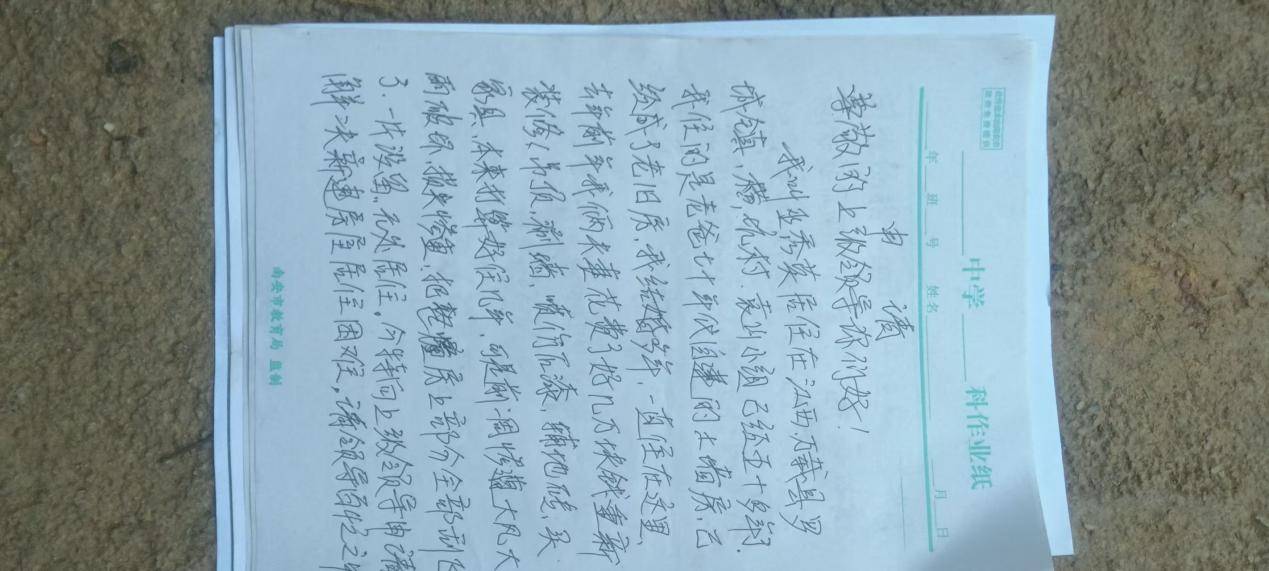 中学 科作业纸
年 班 号 姓名 月 日
申 请
尊敬的上级领导你们好！
我叫 秀英居住在江西万载县罗
城镇 村 小组已经五十多年了
我住的是老爸七十年代自建的土墙房，已
经成了老旧房，我结婚多年，一直住在这里、
去年前年我俩夫妻花费了好几万块钱重新
装修（吊顶，刷墙、喷仿瓦漆，铺地砖，买
家具，本来打算好住几年，可是前一周惨遭大风大
雨破坏，损失惨重，把整幢房上部分全部刮飞
了，一片没留，无处居住。今特向上级领导申请
解决新建房至居住困难，请领导百忙之中
南安市教育局 监制